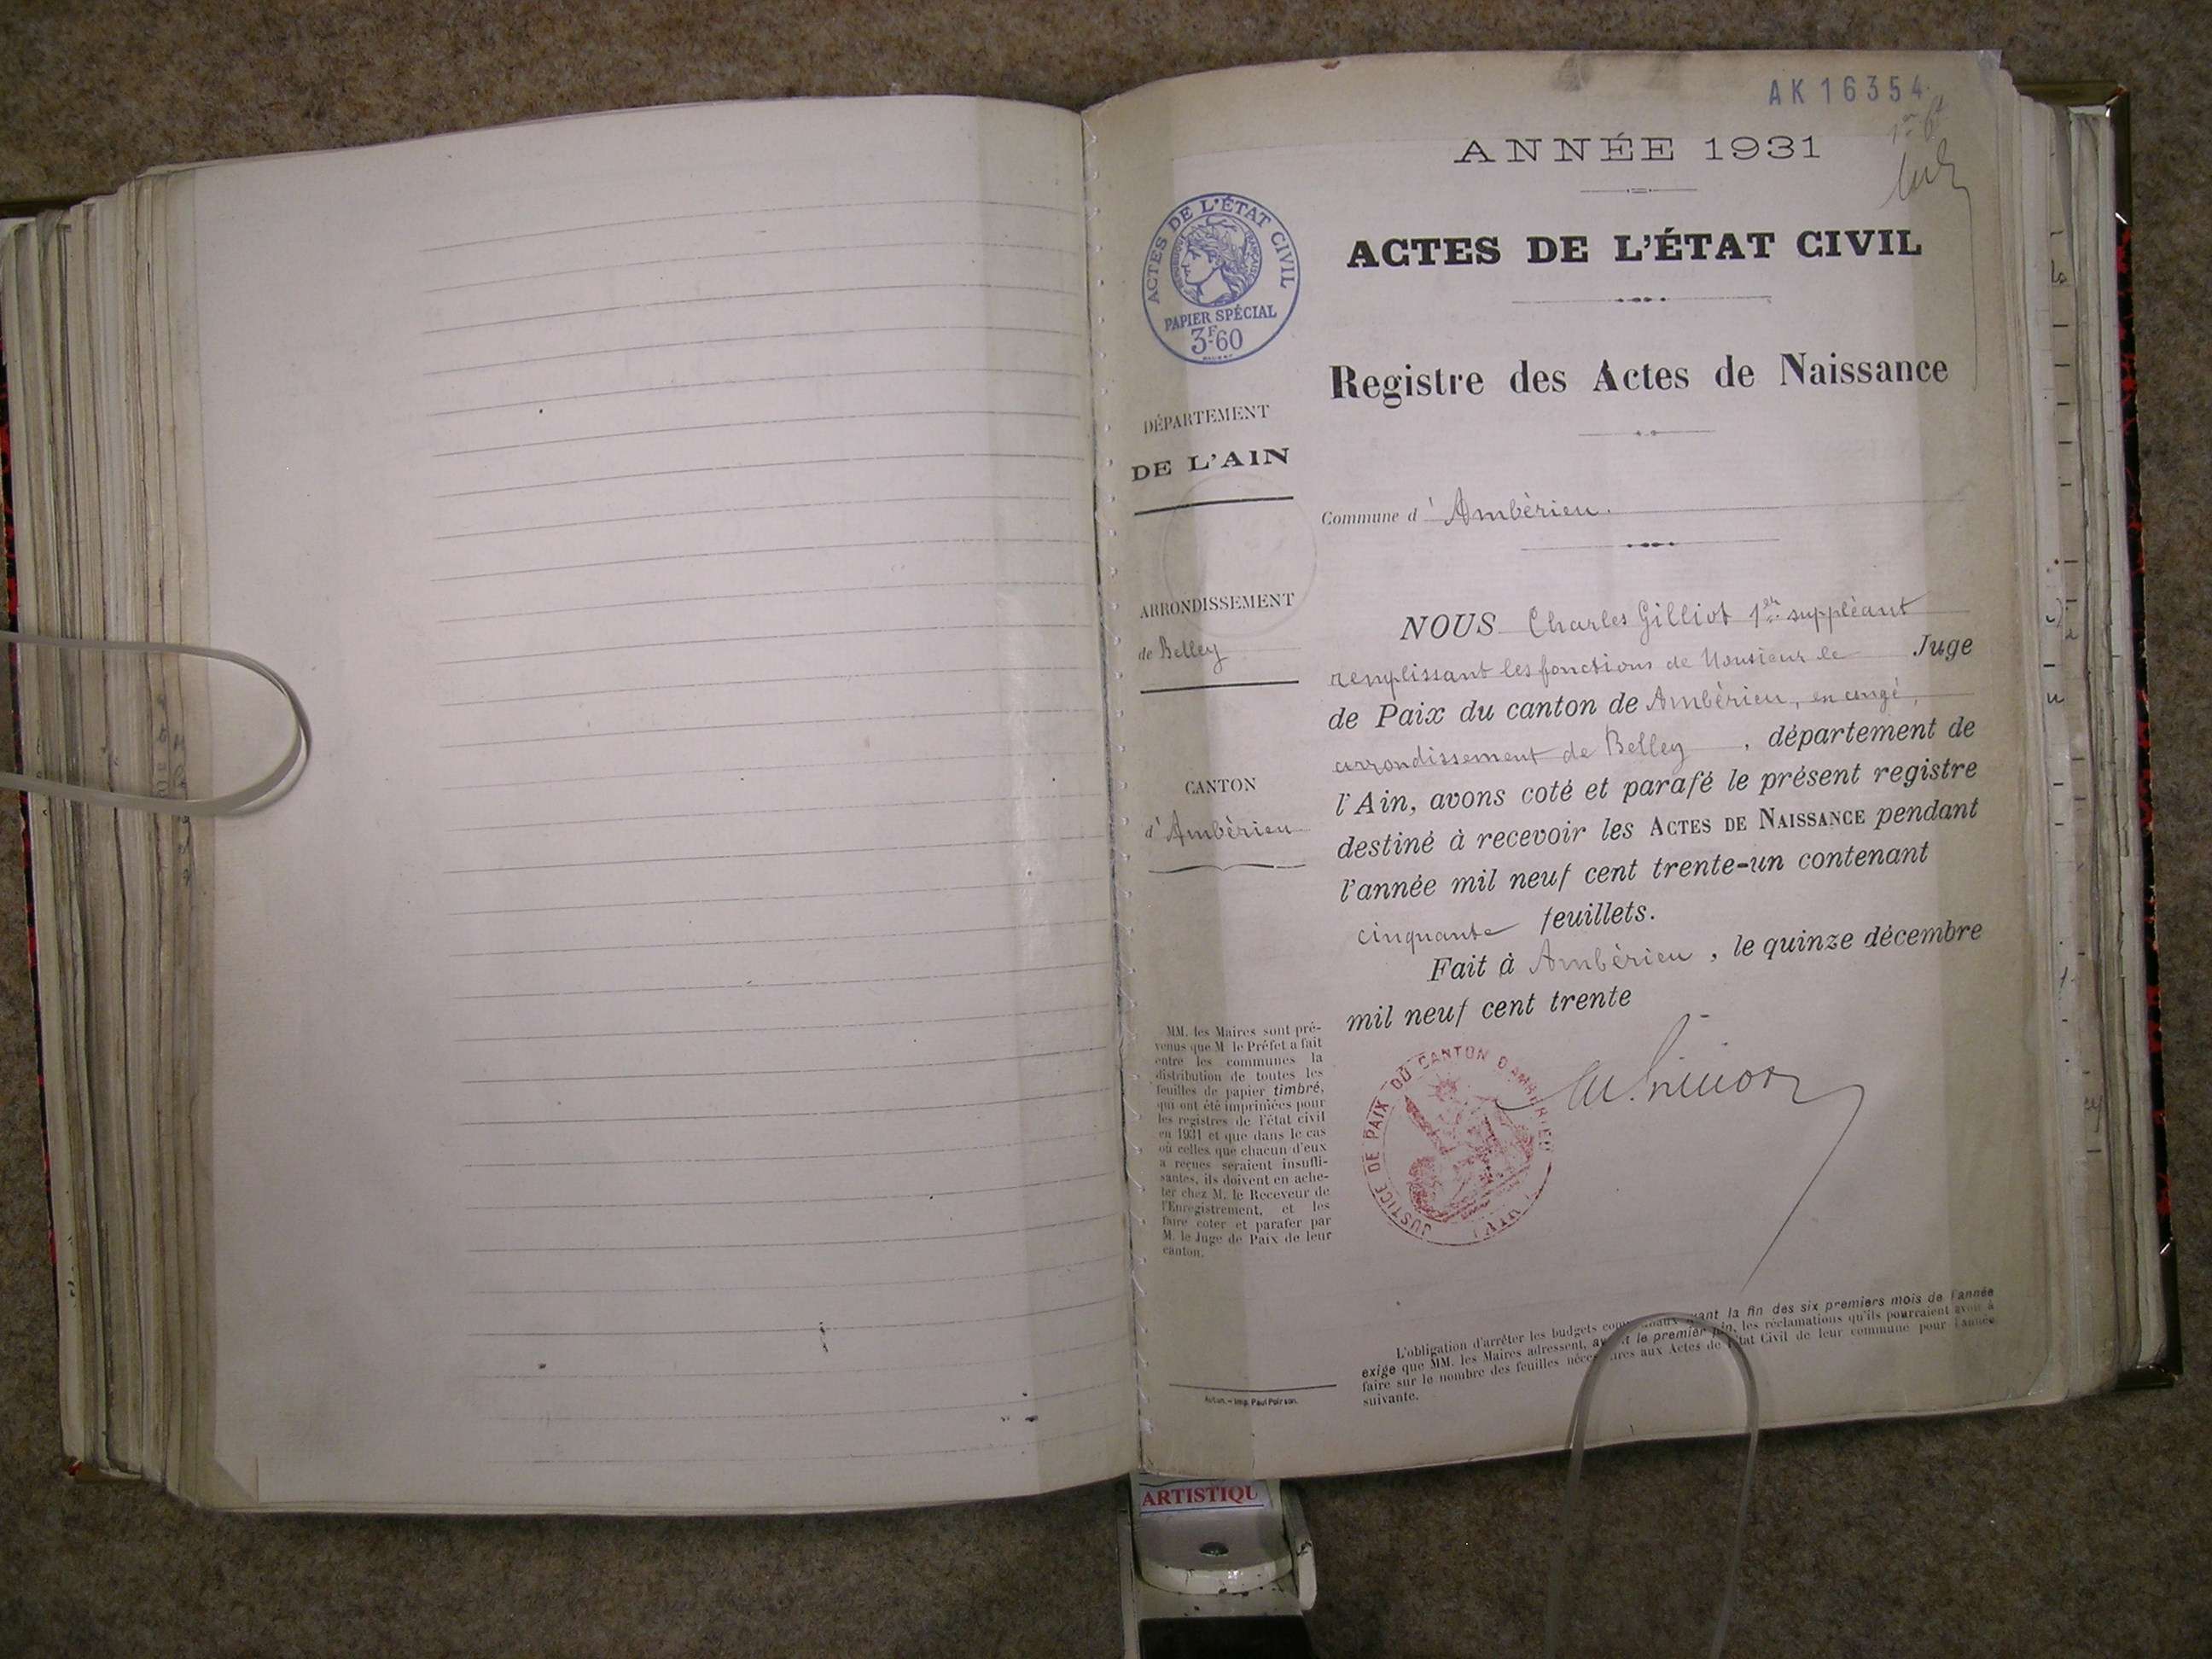 AK16354
1er ft
ANNÉE 1931
ACTES DE L'ÉTAT CIVIL
RÉPUBLIQUE FRANÇAISE
PAPIER SPÉCIAL
3F60
ACTES DE L'ÉTAT CIVIL
Registre des Actes de Naissance
DÉPARTEMENT
DE L'AIN
Commune d'Ambérieu.
ARRONDISSEMENT
de Belley
CANTON
d'Ambérieu
NOUS Charles Gilliot 1er suppléant
remplissant les fonctions de Monsieur le Juge
de Paix du canton de Ambérieu, en congé,
arrondissement de Belley, département de
l'Ain, avons coté et parafé le présent registre
destiné à recevoir les ACTES DE NAISSANCE pendant
l'année mil neuf cent trente-un contenant
cinquante feuillets.
Fait à Ambérieu, le quinze décembre
mil neuf cent trente
JUSTICE DE PAIX DU CANTON D'AMBÉRIEU
(AIN)
MM. les Maires sont pré-
venus que M. le Préfet a fait
entre les communes la
distribution de toutes les
feuilles de papier timbré,
qui ont été imprimées pour
les registres de l'état civil
en 1931 et que dans le cas
où celles que chacun d'eux
a reçues seraient insuffi-
santes, ils doivent en ache-
ter chez M. le Receveur de
l'Enregistrement, et les
faire coter et parafer par
M. le Juge de Paix de leur
canton.
Autun. - Imp. Paul Poirson.
L'obligation d'arrêter les budgets communaux avant la fin des six premiers mois de l'année
exige que MM. les Maires adressent, avant le premier juin, les réclamations qu'ils pourraient avoir à
faire sur le nombre des feuilles nécessaires aux Actes de l'État Civil de leur commune pour l'année
suivante.
ARTISTIQU